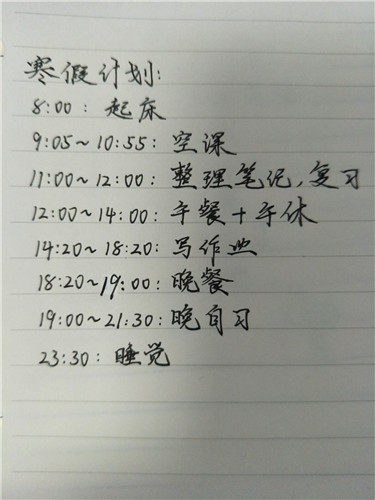 寒假计划:
8:00: 起床
9:05~10:55: 空课
11:00~12:00: 整理笔记,复习
12:00~14:00: 午餐+午休
14:20~18:20: 写作业
18:20~19:00: 晚餐
19:00~21:30: 晚自习
23:30: 睡觉